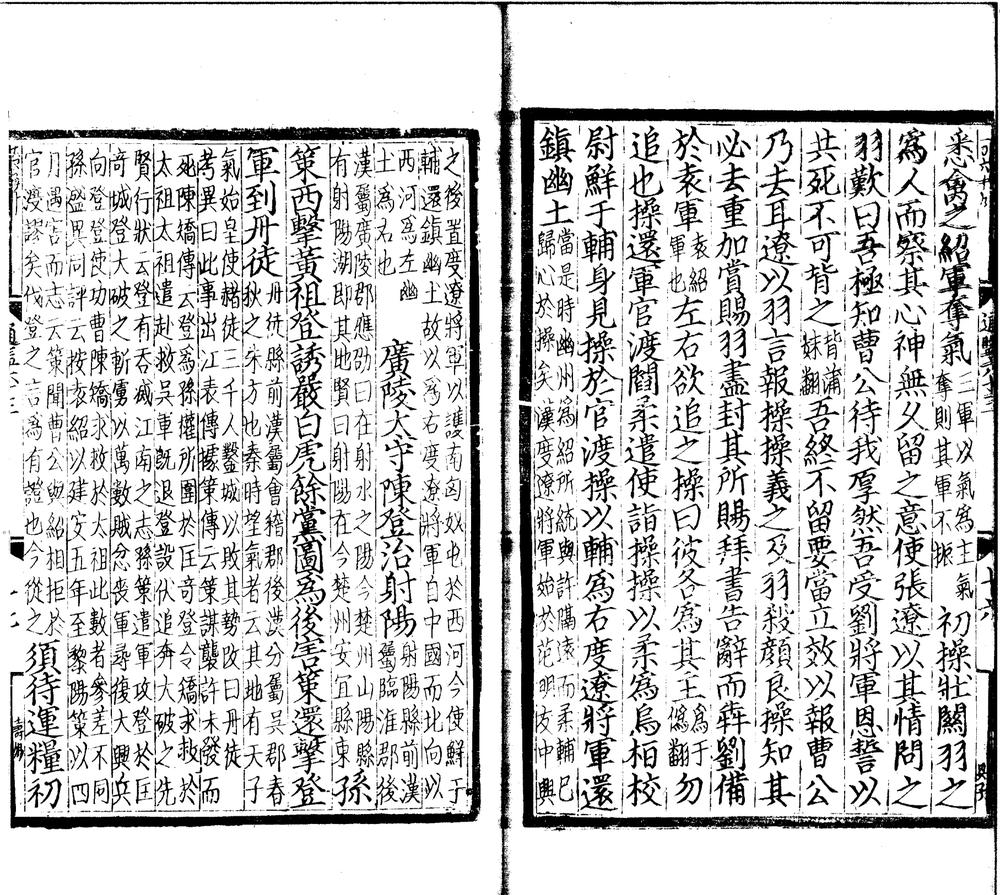 悉禽之紹軍奪氣三軍以氣爲主氣奪則其軍不振初操壯關羽之
爲人而察其心神無久留之意使張遼以其情問之
羽歎曰吾極知曹公待我厚然吾受劉將軍恩誓以
共死不可背之背蒲妹翻吾終不留要當立效以報曹公
乃去耳遼以羽言報操操義之及羽殺顔良操知其
必去重加賞賜羽盡封其所賜拜書告辭而犇劉備
於袁軍袁紹軍也左右欲追之操曰彼各爲其主爲于僞翻勿
追也操還軍官渡閻柔遣使詣操操以柔爲烏桓校
尉鮮于輔身見操於官渡操以輔爲右度遼將軍還
鎮幽土當是時幽州爲紹所統與許隔遠而柔輔已歸心於操矣漢度遼將軍始於范明友中興
之後置度遼將軍以護南匈奴屯於西河今使鮮于輔還鎮幽土故以爲右度遼將軍自中國而北向以
西河爲左幽土爲右也廣陵太守陳登治射陽射陽縣前漢
漢屬廣陵郡應劭曰在射水之陽今楚州山陽縣有射陽湖即其地賢曰射陽在今楚州安宜縣東孫
策西擊黃祖登誘嚴白虎餘黨圖爲後害策還擊登
軍到丹徒丹徒縣前漢屬會稽郡後漢分屬吳郡春秋之朱方也秦時望氣者云其地有天子
氣始皇使赭徒三千人鑿城以敗其勢改曰丹徒考異曰此事出江表傳據策傳云策謀襲許未發而
死陳矯傳云登爲孫權所圍於匡奇登令矯求救於太祖太祖遣赴救吳軍旣退登設伏追奔大破之先
賢行狀云登有吞滅江南之志孫策遣軍攻登於匡奇城登大破之斬虜以萬數賊忿喪軍尋復大興兵
向登登使功曹陳矯求救於太祖此數者參差不同孫盛異同評云按袁紹以建安五年至黎陽策以四
月遇害而志云策聞曹公與紹相拒於官渡謬矣伐登之言爲有證也今從之須待運糧初